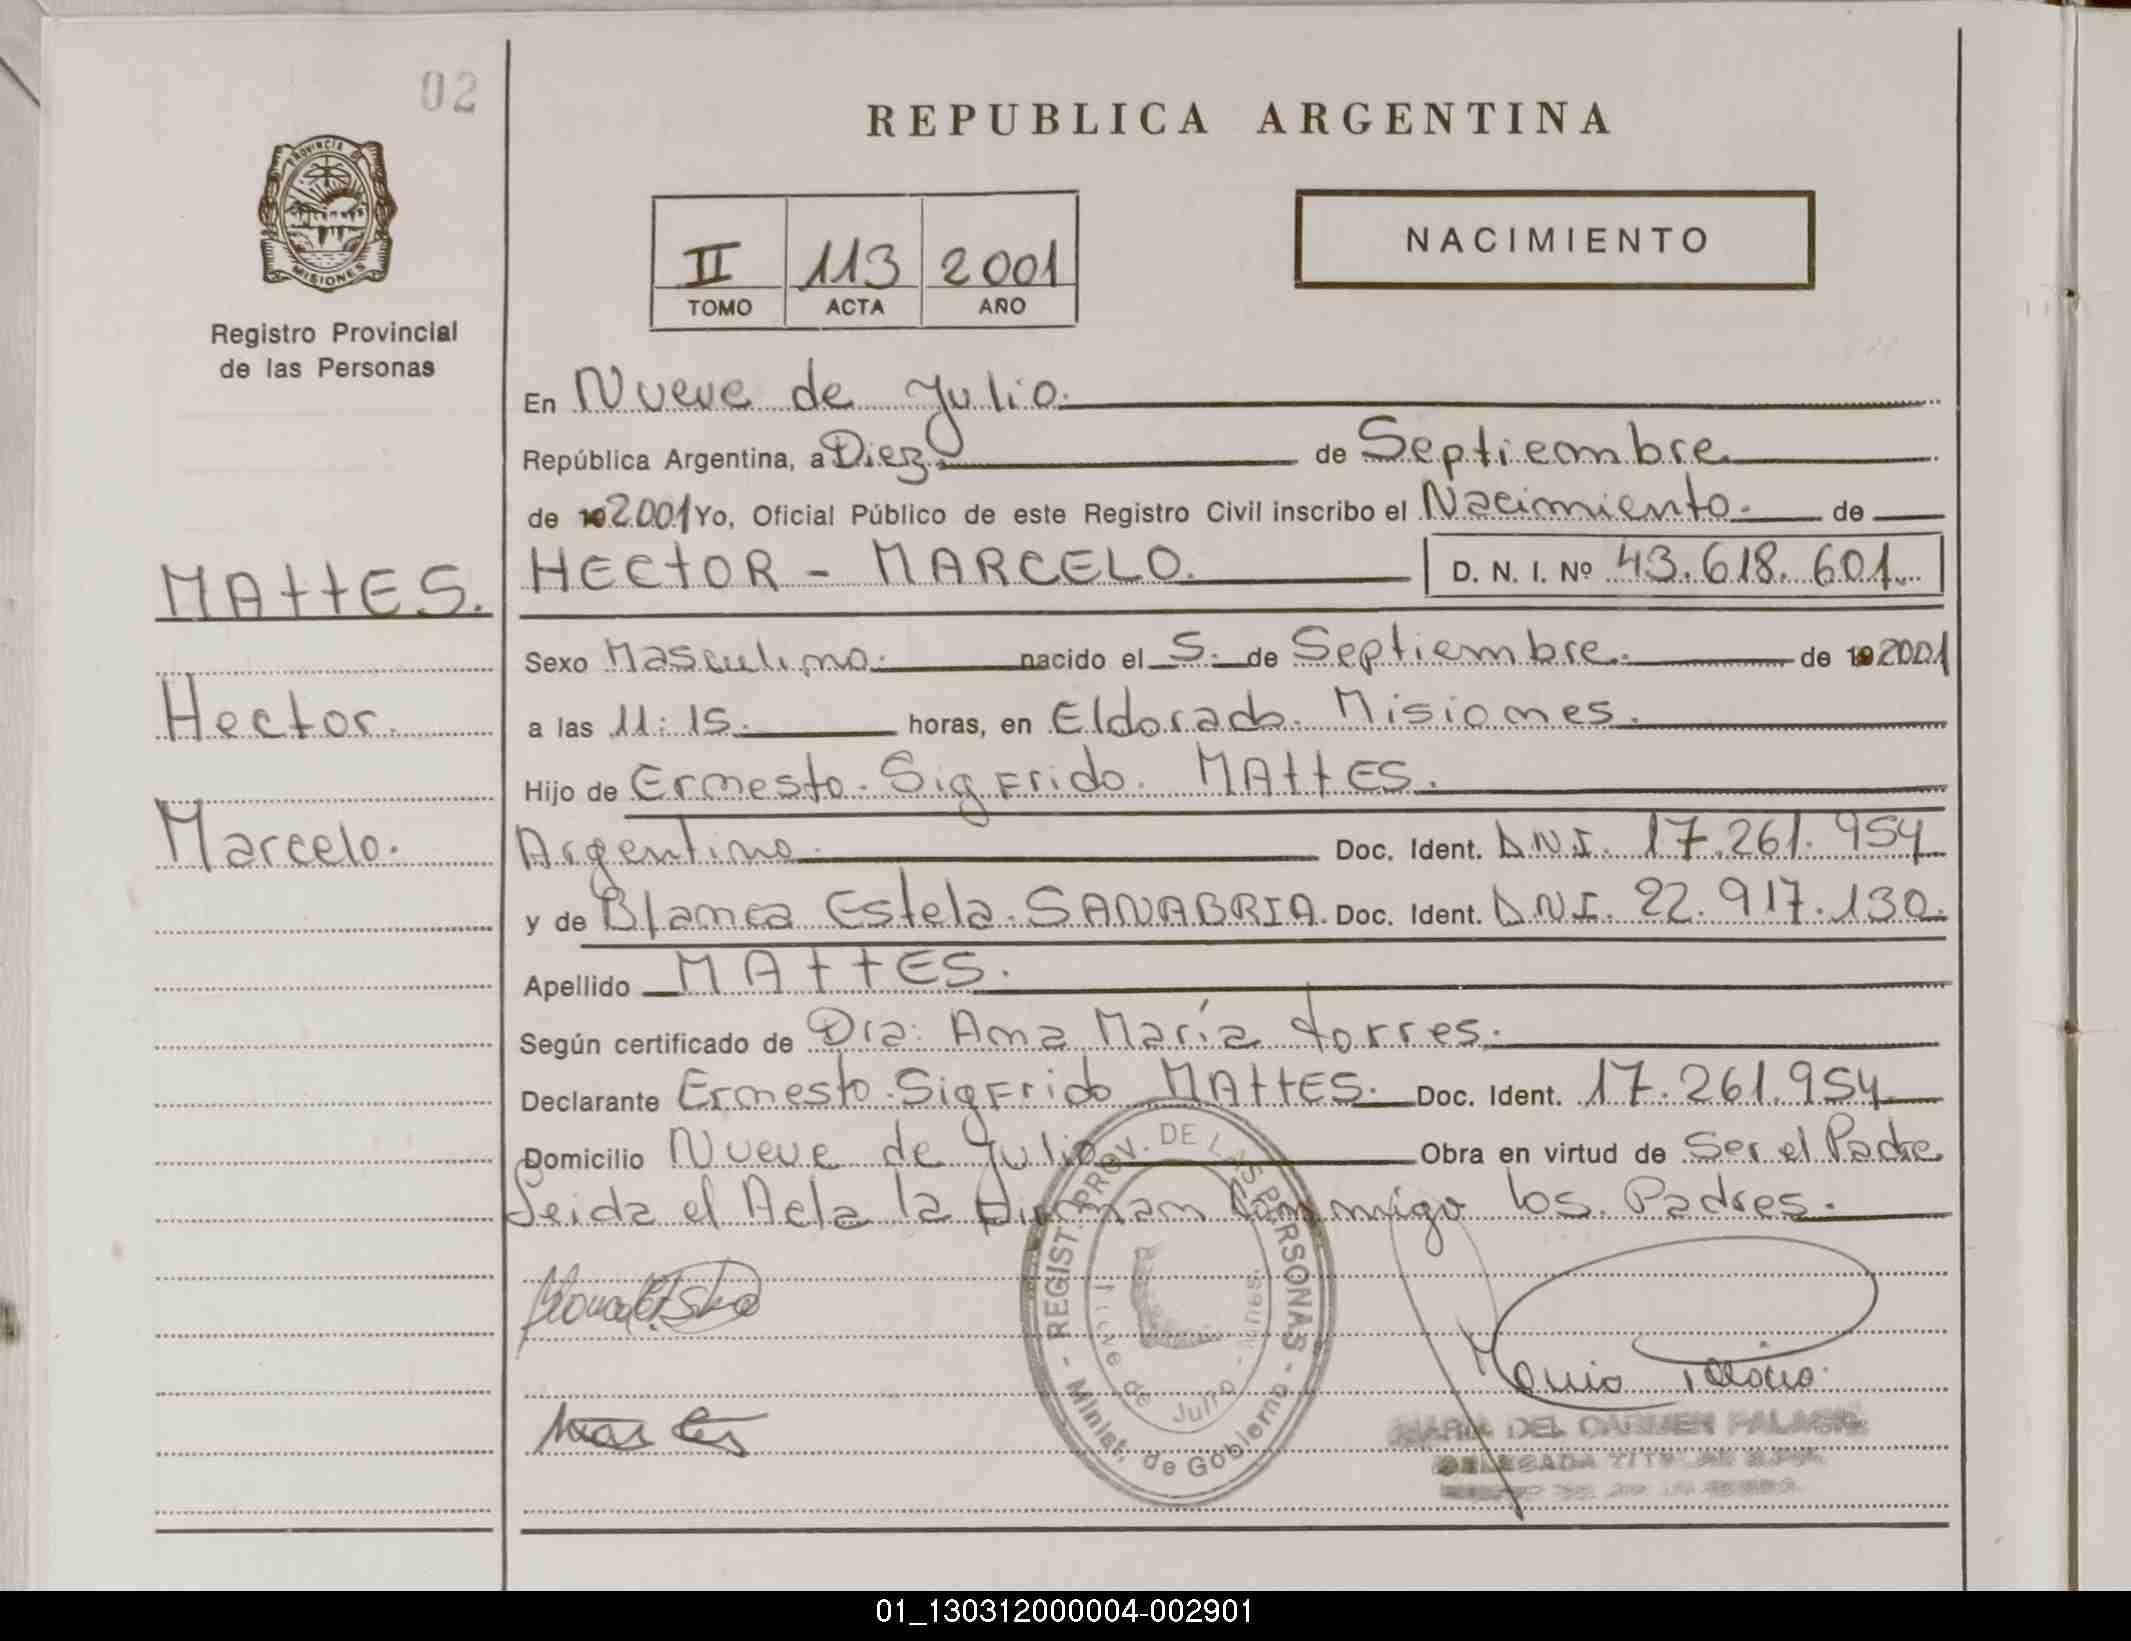 02
REPUBLICA ARGENTINA
PROVINCIA DE
MISIONES
Registro Provincial
de las Personas
II 113 2001
TOMO ACTA AÑO
NACIMIENTO
En Nueve de Julio.
República Argentina, a Diez. de Septiembre
de 192001 Yo, Oficial Público de este Registro Civil inscribo el Nacimiento. de
MATTES.
HECTOR - MARCELO. D. N. I. Nº 43.618.601.
Sexo Masculino. nacido el 5. de Septiembre. de 192001
Hector.
a las 11:15. horas, en Eldorado. Misiones.
Hijo de Ernesto. Sigfrido. MATTES.
Marcelo.
Argentino. Doc. Ident. D.N.I. 17.261.954
y de Blanca Estela. SANABRIA. Doc. Ident. D.N.I. 22.917.130.
Apellido MATTES.
Según certificado de Dra. Ana María Torres.
Declarante Ernesto. Sigfrido MATTES. Doc. Ident. 17.261.954
Domicilio Nueve de Julio Obra en virtud de Ser el Padre
Leida el Acta la Firman Conmigo los Padres.
REGIST. PROV. DE LAS PERSONAS
Nueve de Julio - Mnes.
- Minist. de Gobierno -
MARIA DEL CARMEN PALACIO
DELEGADA TITULAR
01_130312000004-002901